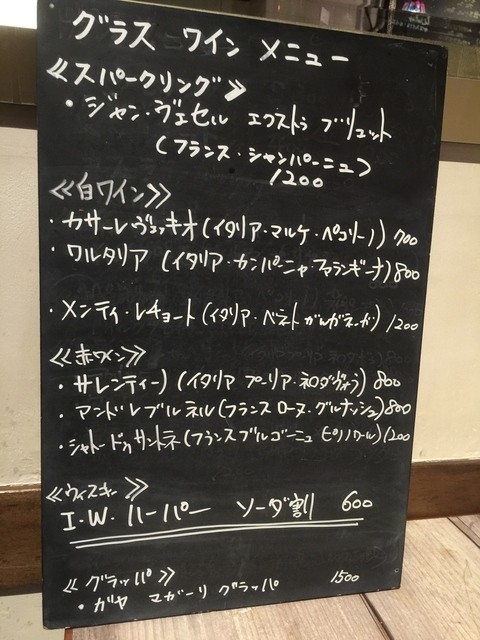 グラス ワイン メニュー
≪スパークリング≫
・ジャン・ヴェセル エクストラ ブリュット
(フランス・シャンパーニュ)
1200
≪白ワイン≫
・カサーレヴェッキオ(イタリア・マルケ・ペコリーノ) 700
・ワルタリア (イタリア・カンパニャ・ファランギーナ) 800
・メンティ・レチョート(イタリア・ベネト ガルガネーガ) 1200
≪赤ワイン≫
・サレンティーノ (イタリア プーリア・ネロダヴォラ) 800
・アンドレブルネル(フランス ローヌ・グルナッシュ) 800
・シャトー ドゥ サントネ(フランス ブルゴーニュ ピノノワール) 1200
≪ウィスキー≫
I.W.ハーパー ソーダ割 600
≪グラッパ≫
・ガヤ マガーリ グラッパ 1500